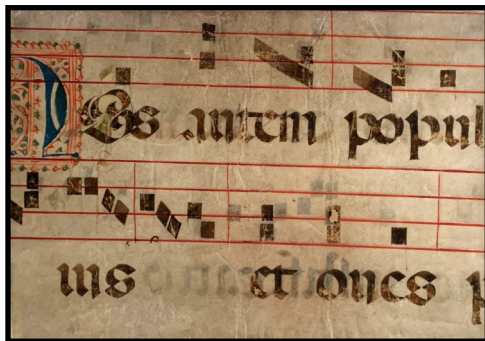 NOs autem popul
ius et oues p